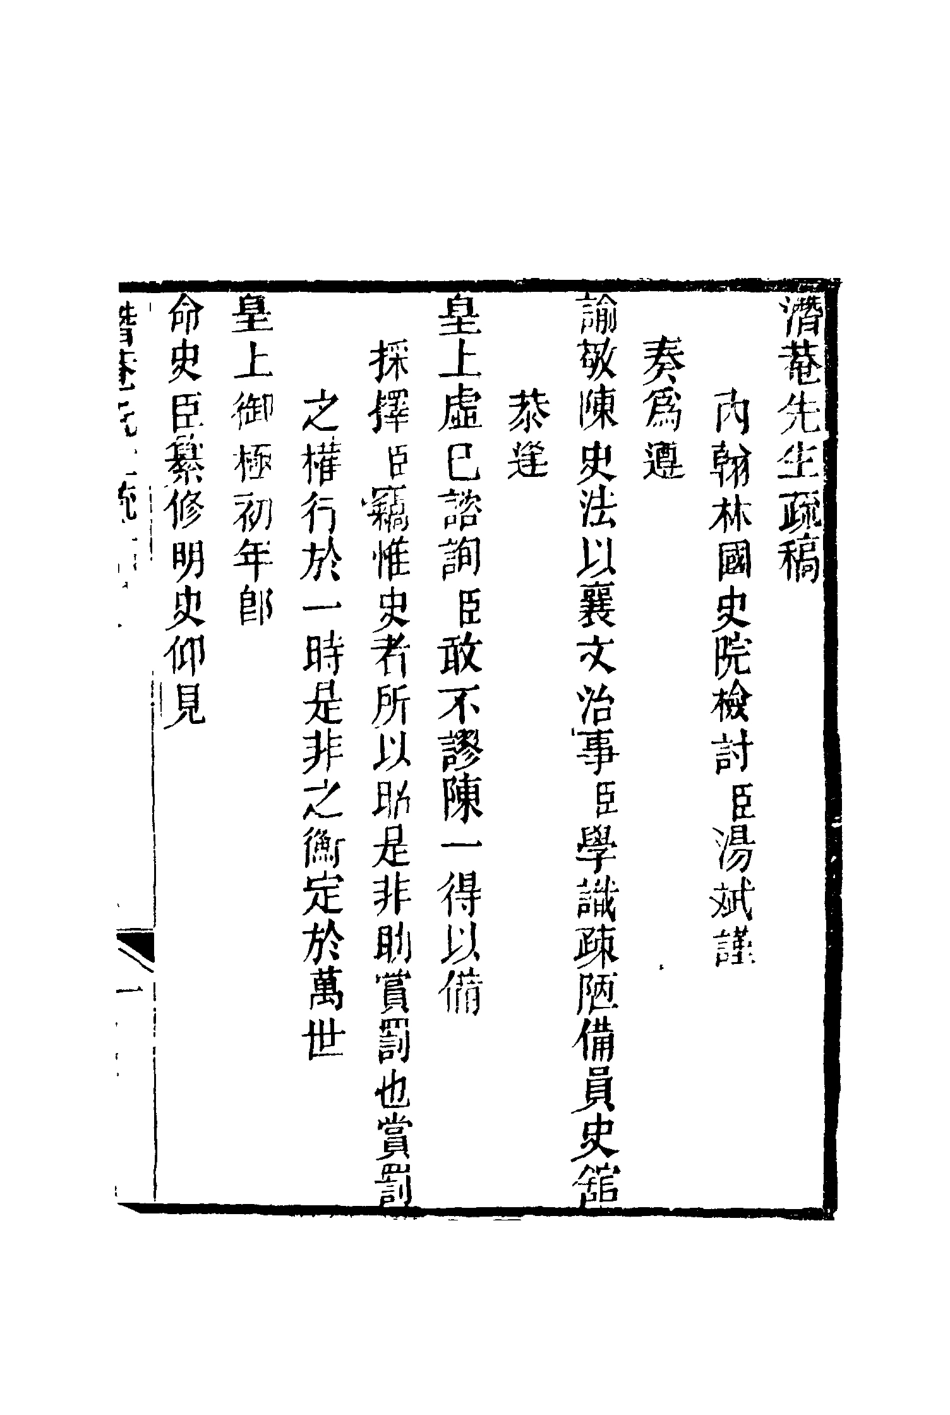 潛菴先生疏稿
內翰林國史院檢討臣湯斌謹
奏爲遵
諭敬陳史法以襄文治事臣學識疎陋備員史舘
恭逢
皇上虛已諮詢臣敢不謬陳一得以備
採擇臣竊惟史者所以昭是非助賞罰也賞罰
之權行於一時是非之衡定於萬世
皇上御極初年卽
命史臣纂修明史仰見